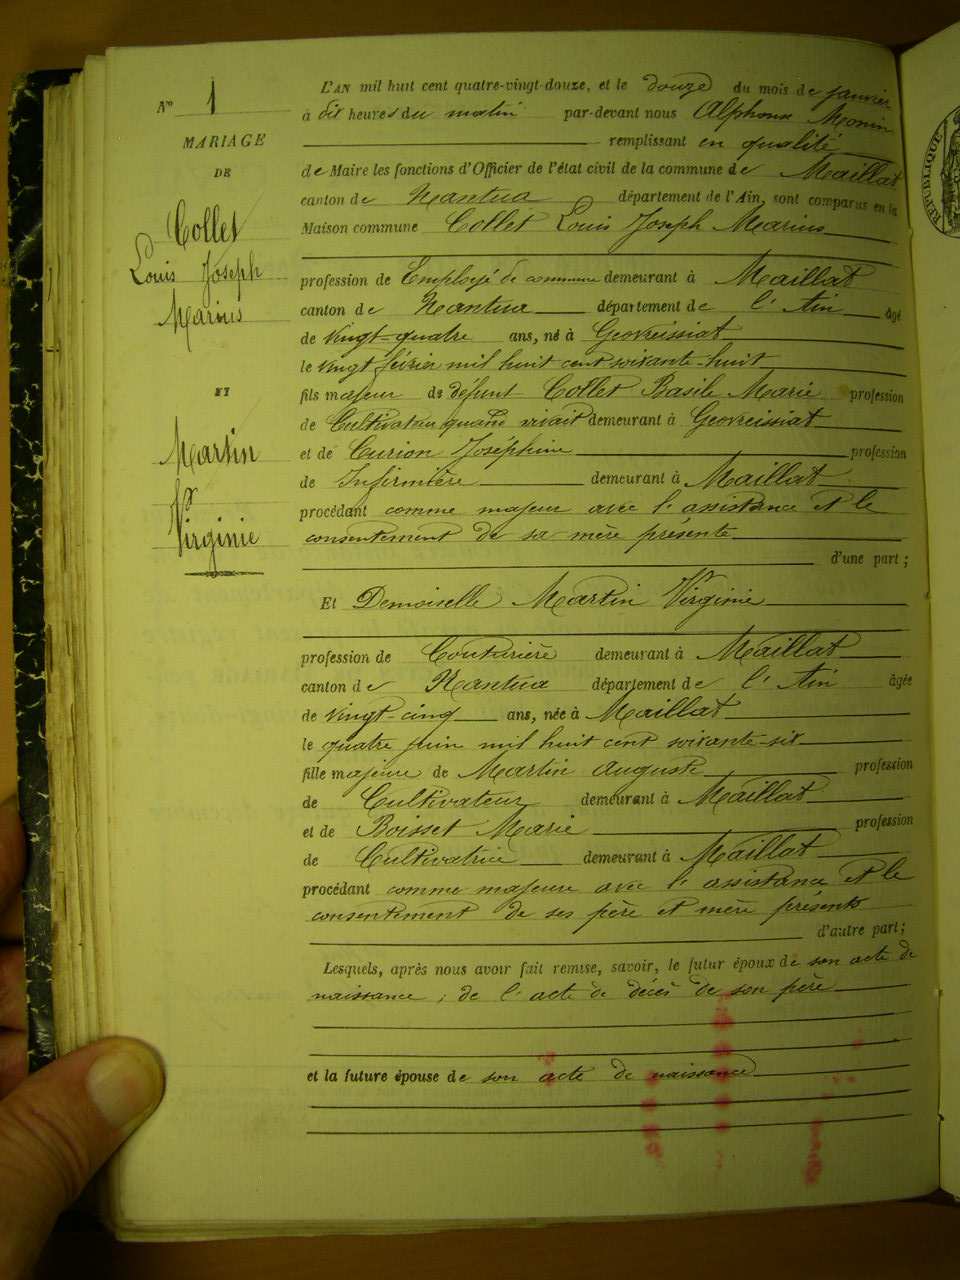 N° 1
MARIAGE
DE
Collet
Louis Joseph
Marius
ET
Martin
Virginie
L'AN mil huit cent quatre-vingt-douze, et le douze du mois de janvier
à dix heures du matin par-devant nous Alphonse Monin
remplissant en qualité
de Maire les fonctions d'Officier de l'état civil de la commune de Maillat
canton de Nantua département de l'Ain, sont comparus en la
Maison commune Collet Louis Joseph Marius
profession de Employé de commune demeurant à Maillat
canton de Nantua département de l'Ain âgé
de vingt-quatre ans, né à Geovreissiat
le vingt février mil huit cent soixante-huit
fils majeur de défunt Collet Basile Marie profession
de Cultivateur quand vivait demeurant à Geovreissiat
et de Curion Joséphine profession
de Infirmière demeurant à Maillat
procédant comme majeur avec l'assistance et le
consentement de sa mère présente
d'une part ;
Et Demoiselle Martin Virginie
profession de Couturière demeurant à Maillat
canton de Nantua département de l'Ain âgée
de vingt-cinq ans, née à Maillat
le quatre juin mil huit cent soixante-six
fille majeure de Martin Auguste profession
de Cultivateur demeurant à Maillat
et de Boisset Marie profession
de Cultivatrice demeurant à Maillat
procédant comme majeure avec l'assistance et le
consentement de ses père et mère présents
d'autre part ;
Lesquels, après nous avoir fait remise, savoir, le futur époux de son acte de
naissance ; de l'acte de décès de son père
et la future épouse de son acte de naissance
REPUBLIQUE